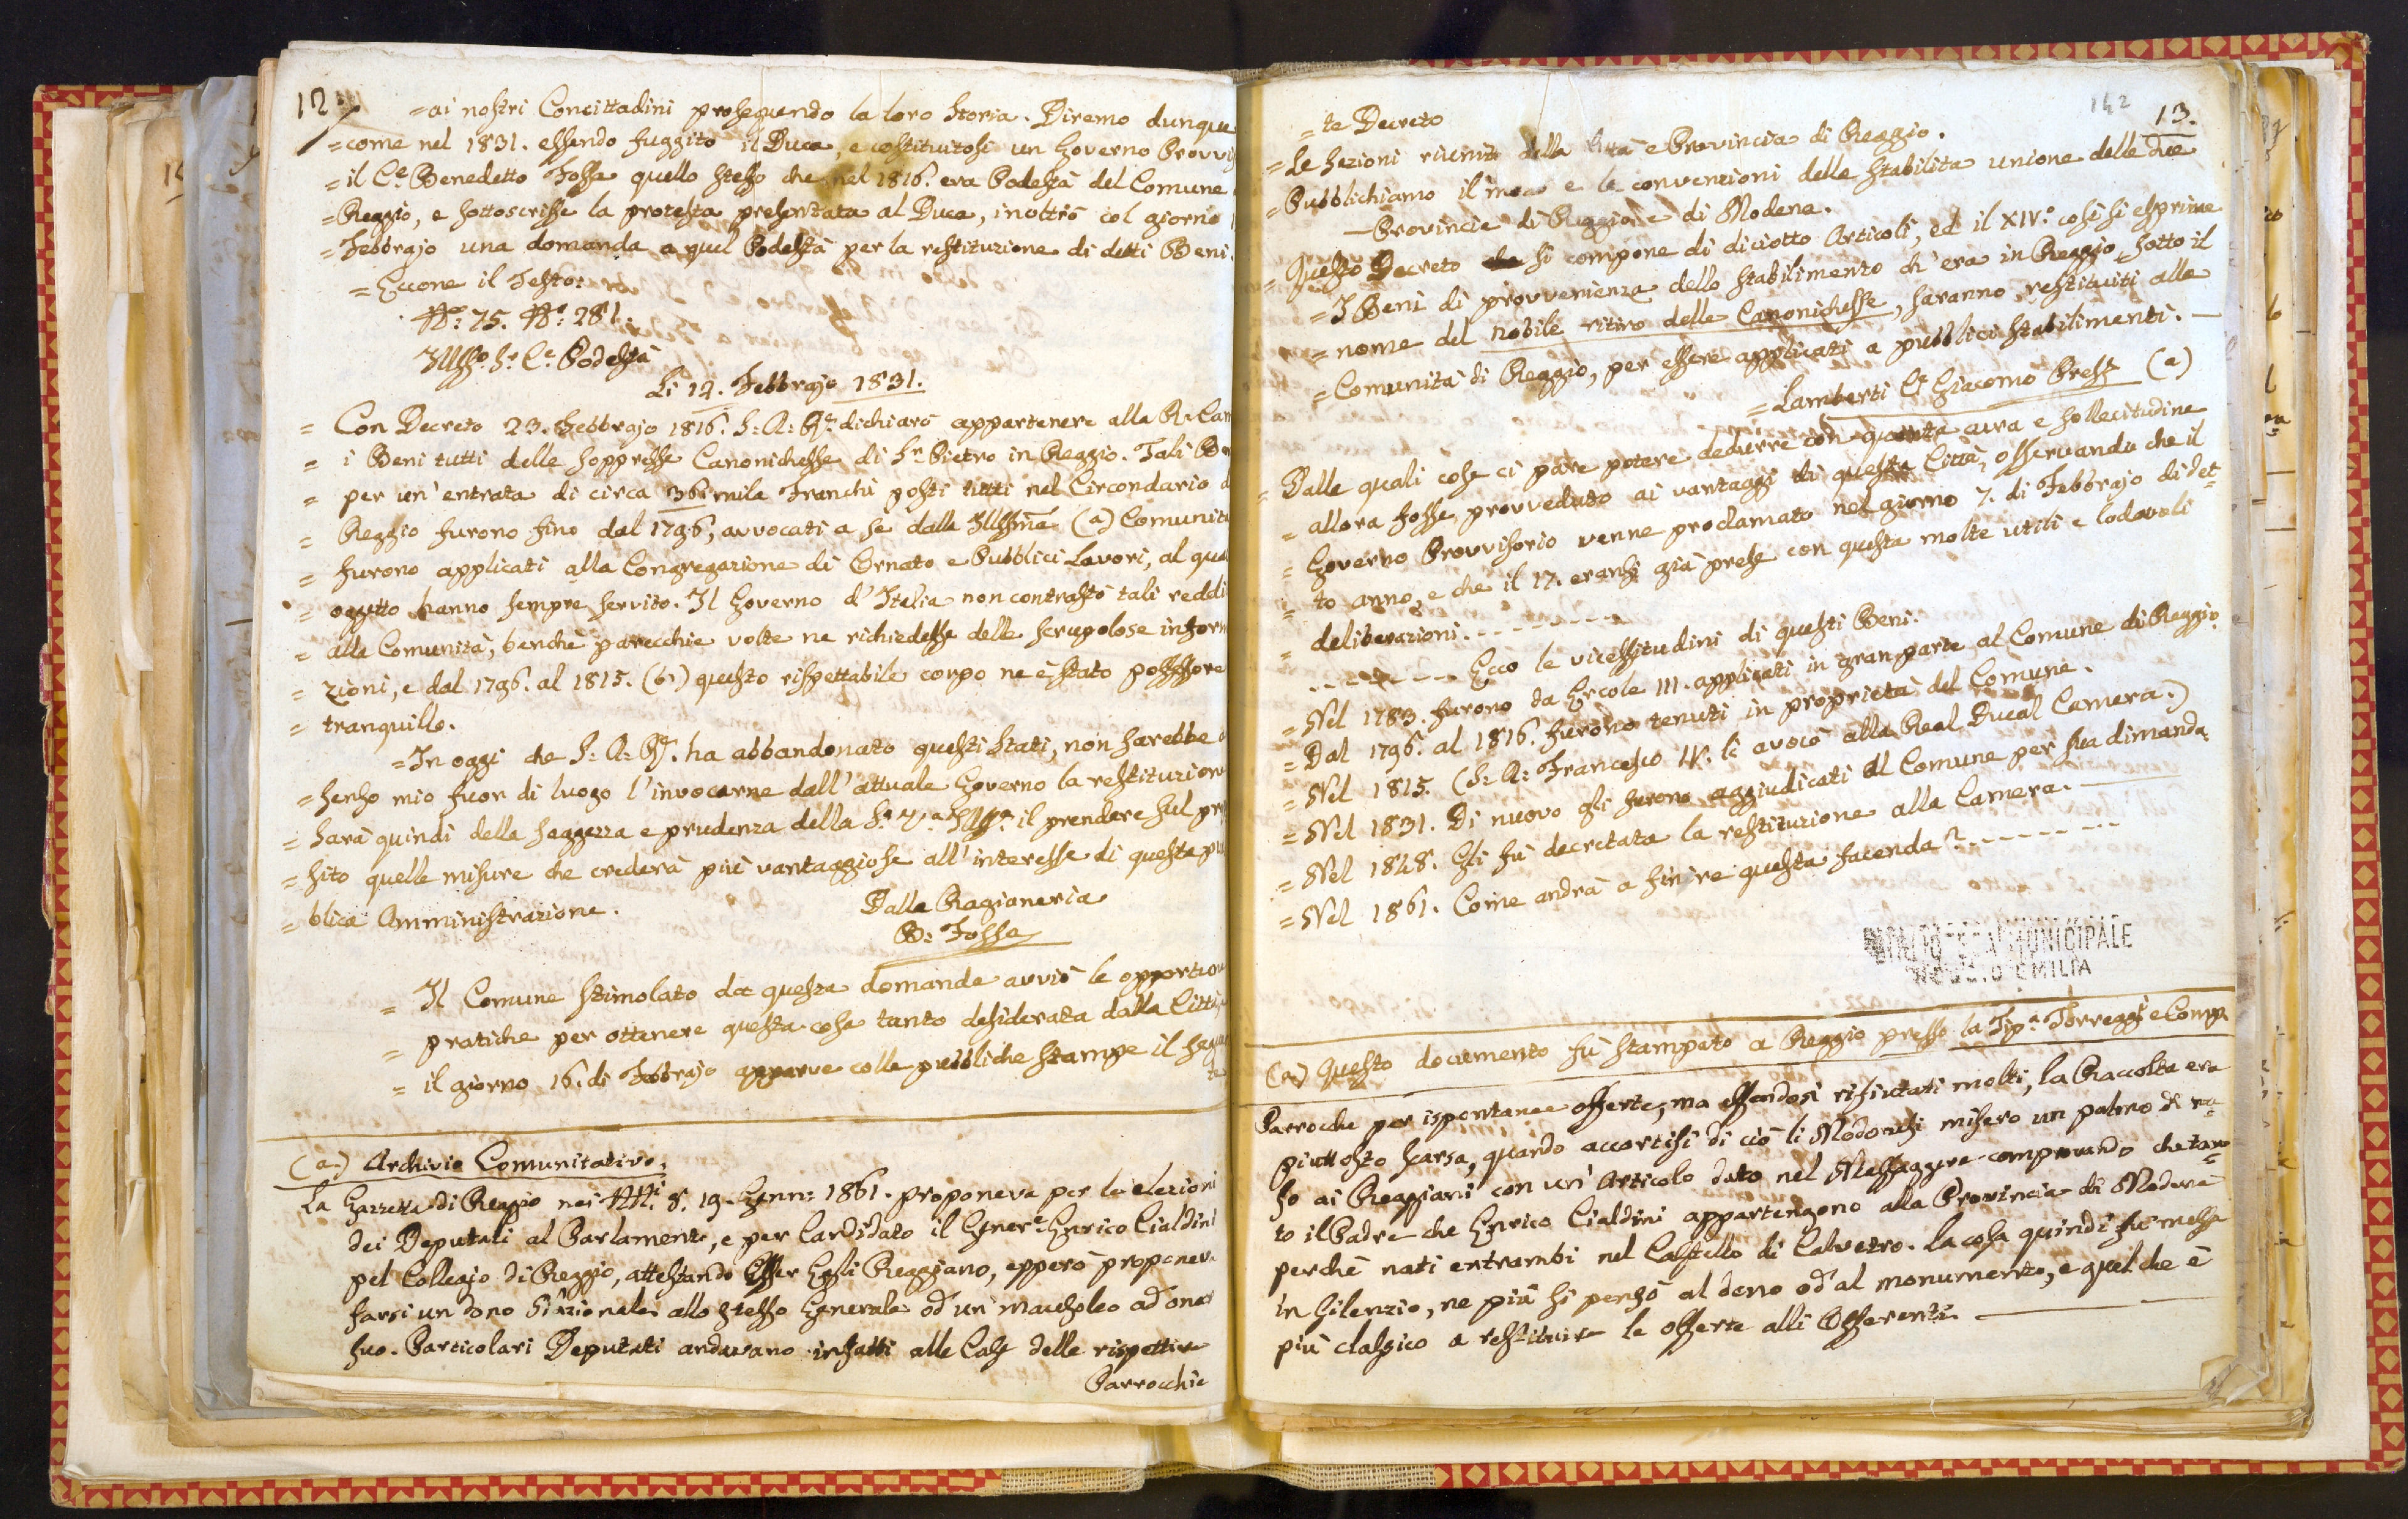 12.
=ai nostri Concittadini proseguendo la loro Storia. Diremo dunque
=come nel 1831. essendo fuggito il Duca, e costituitosi un Governo Provvis
=il Ce. Benedetto Fossa quello stesso che nel 1816. era Podestà del Comune
=Reggio, e sottoscrisse la protesta presentata al Duca, inoltrò col giorno 1
=Febbrajo una domanda a quel Podestà per la restituzione di detti Beni.
=Eccone il Testo:
No: 75. No: 281.
Illsso. Sr. Ce. Podestà
Li 12. Febbrajo 1831.
= Con Decreto 23. Febbrajo 1816. S: A: R: dichiarò appartenere alla R. Cam
= i Beni tutti delle soppresse Canonichesse di Sn. Pietro in Reggio. Tali Ben
= per un' entrata di circa 36. mila Franchi posti tutti nel Circondario d
= Reggio furono fino dal 1796, avvocati a se dalla Illssma (a) Comunità
= furono applicati alla Congregazione di Ornato e Pubblici Lavori, al qua
= oggetto hanno sempre servito. Il Governo d'Italia non contrastò tali reddi
= alla Comunità, benchè parecchie volte ne richiedesse delle scrupolose inform
= zioni, e dal 1796. al 1815. (b) questo rispettabile corpo ne è stato possessore
= tranquillo.
=In oggi che S: A: R. ha abbandonato questi Stati, non sarebbe a
=senso mio fuor di luogo l'invocarne dall'attuale Governo la restituzione
= sarà quindi della saggezza e prudenza della Sa. Va. Illssa. il prendere sul pro
= sito quelle misure che crederà più vantaggiose all'interesse di questa pu
= blica Amministrazione.
Dalla Ragioneria
B: Fossa
= Il Comune stimolato da questa domanda avviò le opportun
= pratiche per ottenere questa cosa tanto desiderata dalla Città,
= il giorno 16. di Febbrajo apparve colle pubbliche stampe il segue
te
(a) Archivio Comunitativo.
La Gazzetta di Reggio nei NNi. 8. 19. Genn: 1861. proponeva per le elezioni
dei Deputati al Parlamento, e per Candidato il Genere. Enrico Cialdini
pel Collegio di Reggio, attestando Esser Egli Reggiano, epperò proponeva
farsi un dono allo stesso Generale od un mausoleo ad onor
suo. Particolari Deputati andavano infatti alle Case delle rispettive
Parrocchie
142
13.
= te Decreto
=Le Sezioni riunite della Città e Provincia di Reggio.
=Pubblichiamo il e le convenzioni della stabilita unione delle due
—Provincie di Reggio, e di Modena.
=Questo Decreto si compone di diciotto Articoli, ed il XIV.o così si esprime
=I Beni di provvenienza dello stabilimento ch'era in Reggio sotto il
= nome del nobile ritiro delle Canonichesse, saranno restituiti alla
= Comunità di Reggio, per essere applicati a pubblici stabilimenti.—
=Lamberti Ce Giacomo Prest (a)
= Dalle quali cose ci pare potere dedurre con quanta cura e sollecitudine
= allora fosse provveduto ai vantaggi di questa Città, osservando che il
= Governo Provvisorio venne proclamato nel giorno 7. di Febbrajo di det=
= to anno, e che il 17. eransi già prese con questa molte utili e lodevoli
= deliberazioni.--------
-------- Ecco le vicessitudini di questi Beni.
=Nel 1783. furono da Ercole III. applicati in gran parte al Comune di Reggio.
=Dal 1796. al 1816. furono tenuti in proprietà del Comune.
=Nel 1815. (S: A: Francesco IV. li avocò alla Real Ducal Camera.)
=Nel 1831. Di nuovo gli furono aggiudicati al Comune per sua dimanda.
=Nel 1848. Gli fù decretata la restituzione alla Camera.—
=Nel 1861. Come andrà a finire questa facenda?--------
BIBLIOTECA MUNICIPALE
REGGIO EMILIA
(a) Questo documento fù stampato a Reggio presso la Tipa. Torreggi e Comp.
Parrocchie per ispontanee offerte, ma essendosi rifiutati molti, la Raccolta era
piuttosto scarsa, quando accortisi di ciò li Modonesi misero un palmo di na=
so ai Reggiani con un Articolo dato nel Messaggere comprovando che tan=
to il Padre che Enrico Cialdini appartengono alla Provincia di Modena
perchè nati entrambi nel Castello di Calvetro. la cosa quindi fu messa
in silenzio, ne più si pensò al dono od al monumento, e quel che è
più classico a restituire le offerte alli Offerenti.—